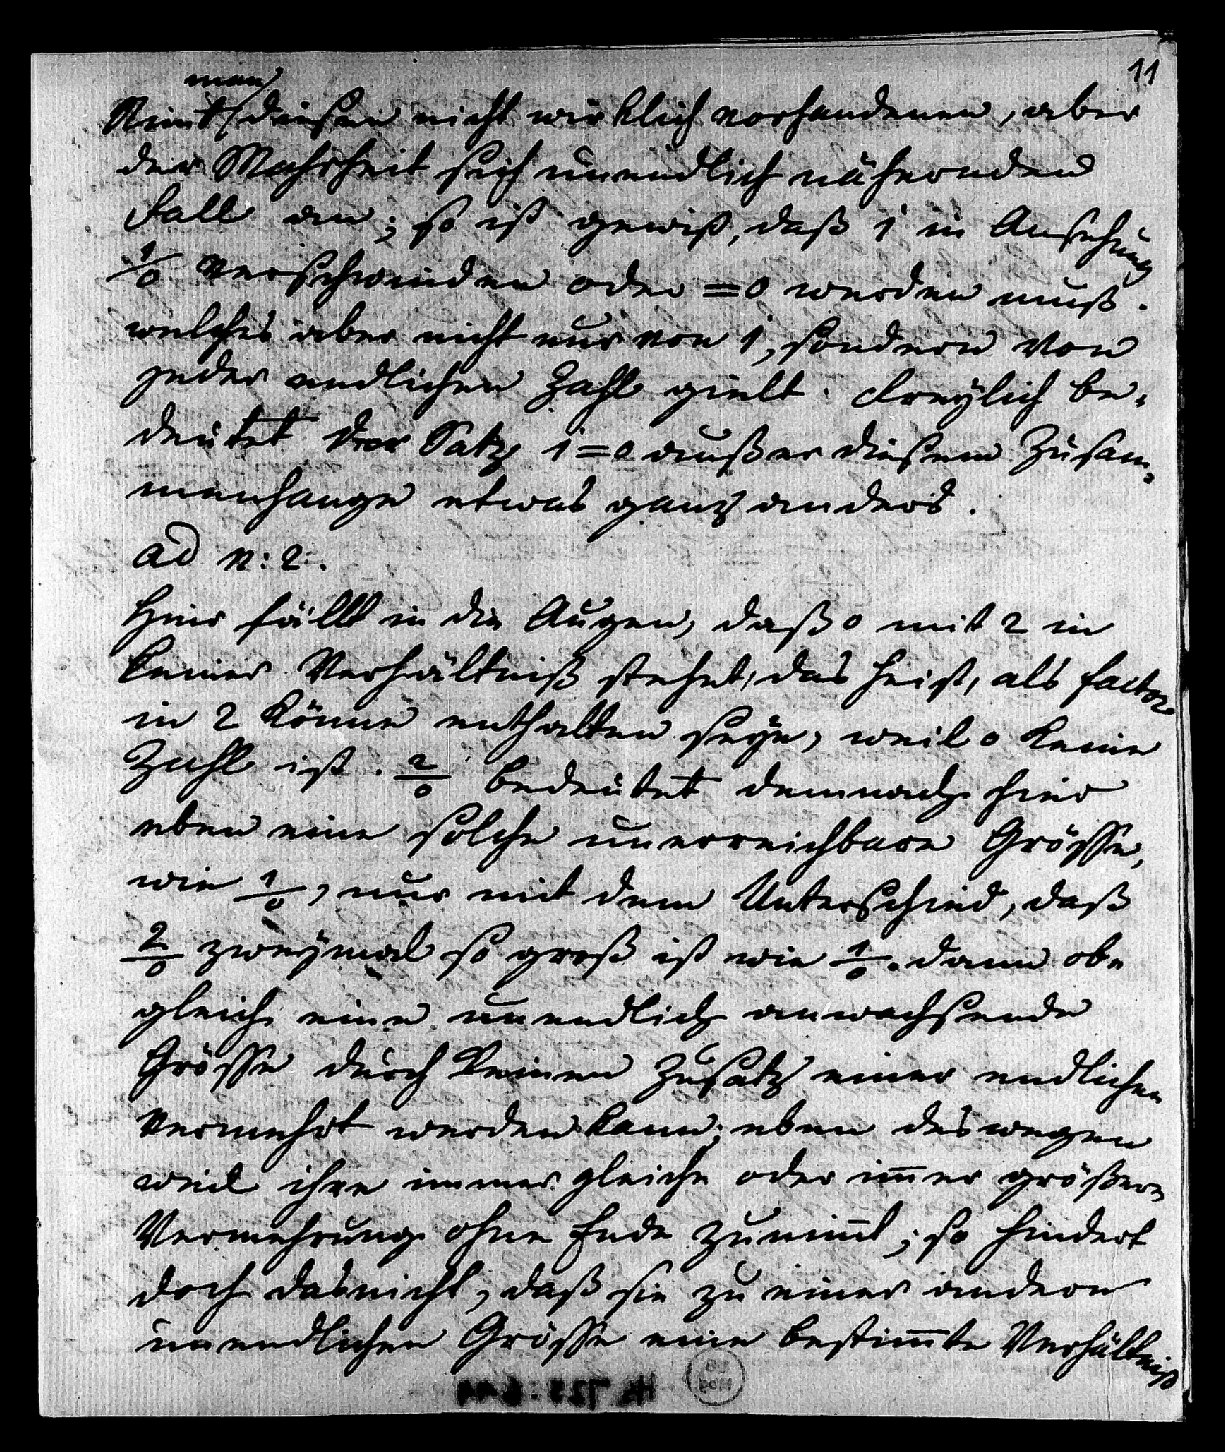 11
man
Nimt diesen nicht wirklich vorhandenen, aber
der Wahrheit sich unendlich nähernden
Fall an; so ist gewiß, daß 1 in Ansehung
1/0 verschwinden oder =0 werden muß.
welches aber nicht nur von 1, sondern von
jeder endlichen Zahl gielt. Freylich be-
deutet der Satz 1=0 außer diesem Zusam-
menhange etwas ganz anders.
ad n: 2.
Hier fällt in die Augen, daß 0 mit 2 in
keiner Verhältniß stehet, das heist, als factor
in 2 könne enthalten seyn, weil 0 keine
Zahl ist. 2/0 bedeutet demnach hier
eben eine solche unerreichbare Grösse,
wie 1/0, nur mit dem Unterschied, daß
2/0 zweymal so groß ist wie 1/0. dann ob-
gleich eine unendlich anwachsende
Grösse durch keinen Zusatz einer endlichen
vermehrt werden kann; eben deswegen
weil ihre immer gleiche oder im̄er größere
Vermehrung ohne Ende zunim̄t; so hindert
doch das nicht, daß sie zu einer andern
unendlichen Grösse eine bestim̄te Verhältniß